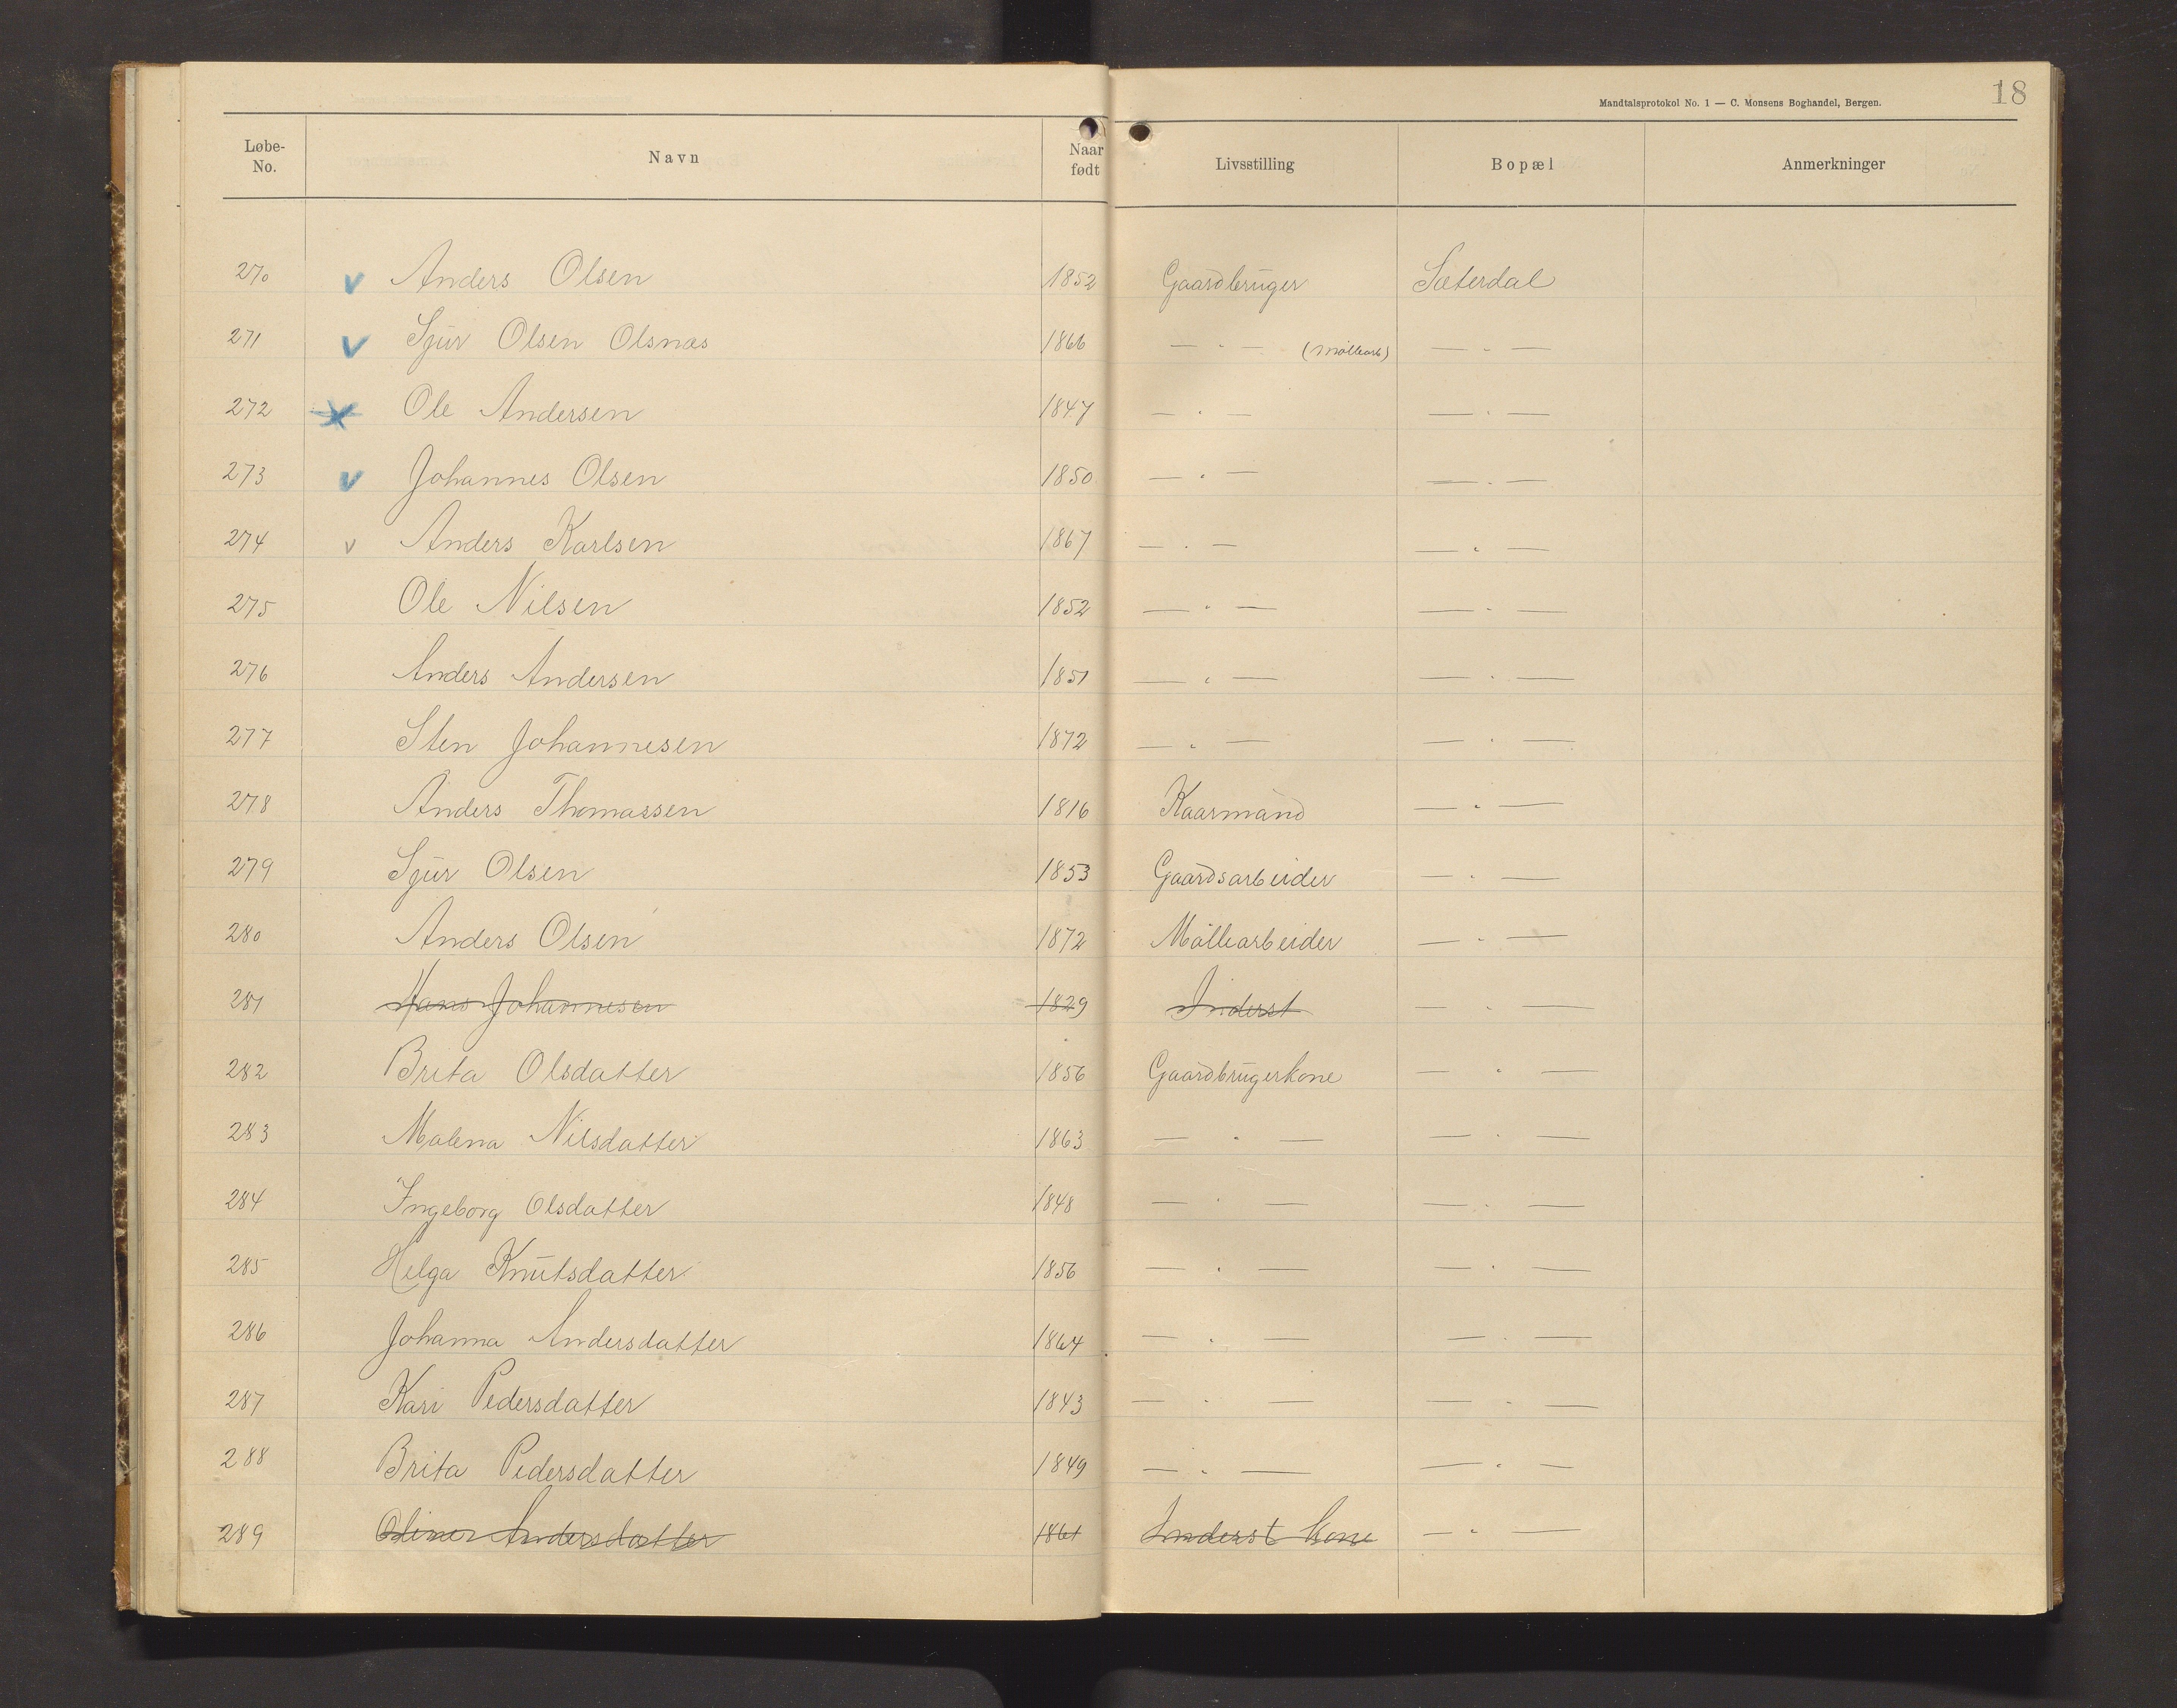 Mandtalsprotokol No. 1 — C. Monsens Boghandel, Bergen.
18
Løbe-No. Navn Naar født Livsstilling Bopæl Anmerkninger
270 v Anders Olsen 1852 Gaardbruger Sæterdal
271 v Sjur Olsen Olsnæs 1866 — " — (Møllearb) — " —
272 Ole Andersen 1847 — " — — " —
273 v Johannes Olsen 1850 — " — — " —
274 v Anders Karlsen 1867 — " — — " —
275 Ole Nilsen 1852 — " — — " —
276 Anders Andersen 1851 — " — — " —
277 Sten Johannesen 1872 — " — — " —
278 Anders Thomassen 1816 Kaarmand — " —
279 Sjur Olsen 1853 Gaardsarbeider — " —
280 Anders Olsen 1872 Møllearbeider — " —
281 Hans Johannesen 1829 Inderst — " —
282 Brita Olsdatter 1856 Gaardbrugerkone — " —
283 Malena Nilsdatter 1863 — " — — " —
284 Ingeborg Olsdatter 1848 — " — — " —
285 Helga Knutsdatter 1856 — " — — " —
286 Johanna Andersdatter 1864 — " — — " —
287 Kari Pedersdatter 1843 — " — — " —
288 Brita Pedersdatter 1849 — " — — " —
289 Andersdatter 1861 Inderst kone — " —